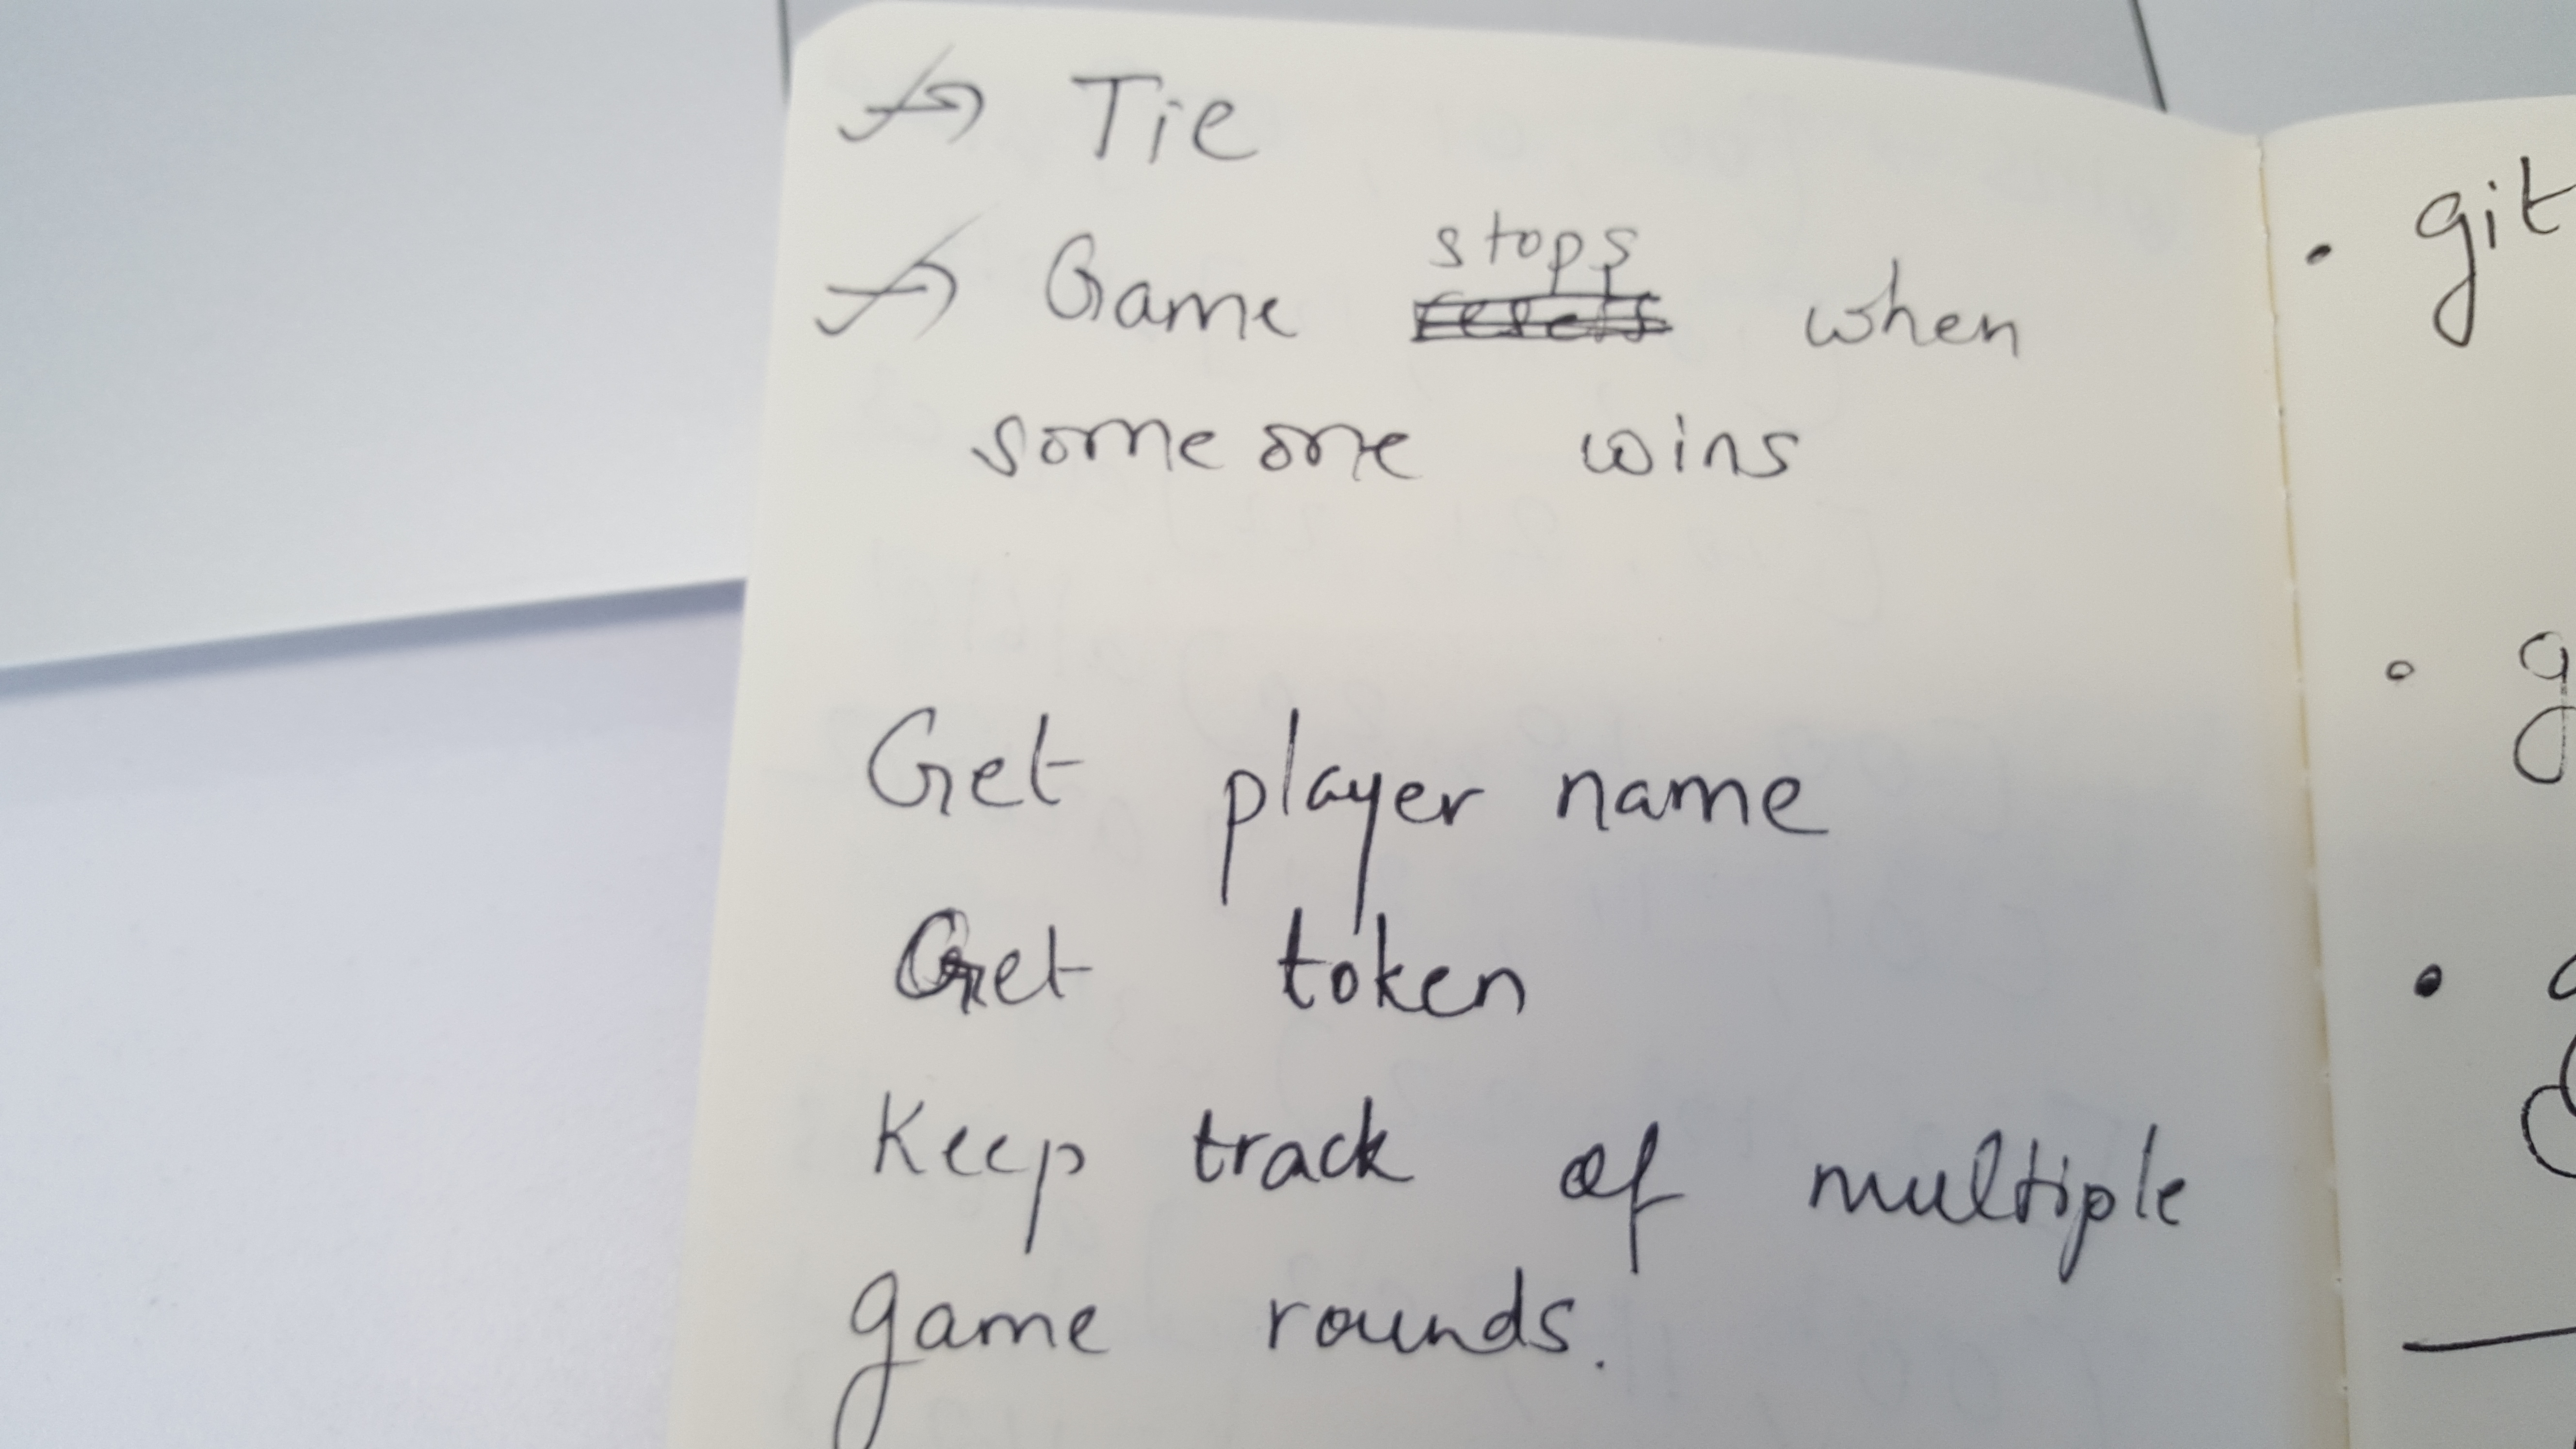 → Tie
→ Game stops when
someone wins
Get player name
Get token
Keep track of multiple
game rounds.
git